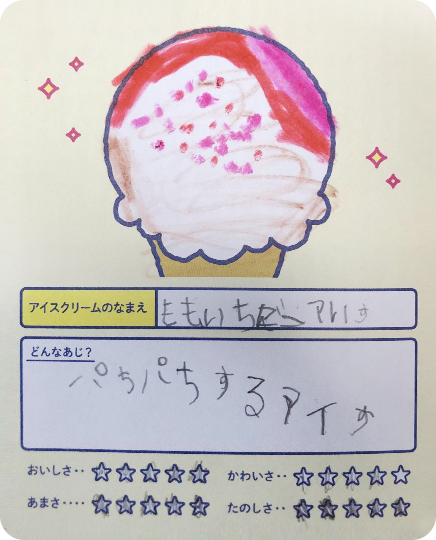 アイスクリームのなまえ ももいち アいす
どんなあじ?
パちパちするアイす
おいしさ‥☆☆☆☆☆ かわいさ‥☆☆☆☆☆
あまさ‥‥☆☆☆☆☆ たのしさ‥☆☆☆☆☆